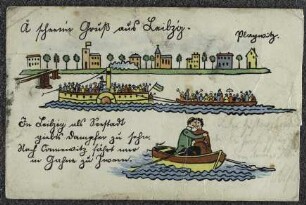 A scheener Gruß aus Leibzig.
Plagwitz.
In Leibzig als Seestadt
gibts Dampfer zu sehn,
Nach Connewitz fährt mer
in Gahne zu Zween.